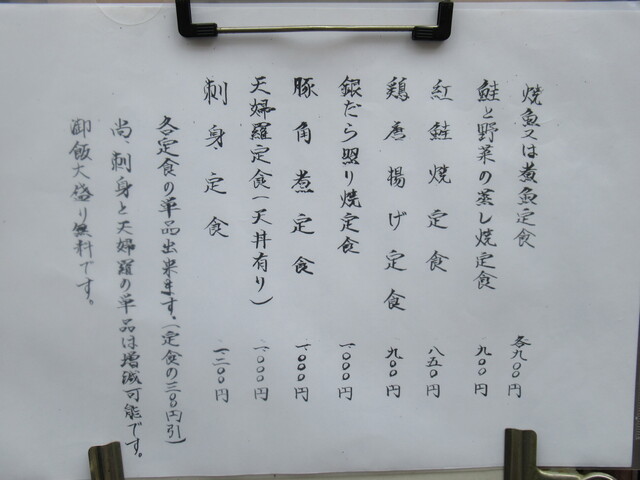 焼魚又は煮魚定食 各九〇〇円
鮭と野菜の蒸し焼定食 九〇〇円
紅鮭焼定食 八五〇円
鶏唐揚げ定食 九〇〇円
銀だら照り焼定食 一、〇〇〇円
豚角煮定食 一、〇〇〇円
天婦羅定食(天丼有り) 一、〇〇〇円
刺身定食 一、二〇〇円
各定食の単品出来ます。(定食の三〇円引)
尚、刺身と天婦羅の単品は増減可能です。
御飯大盛り無料です。